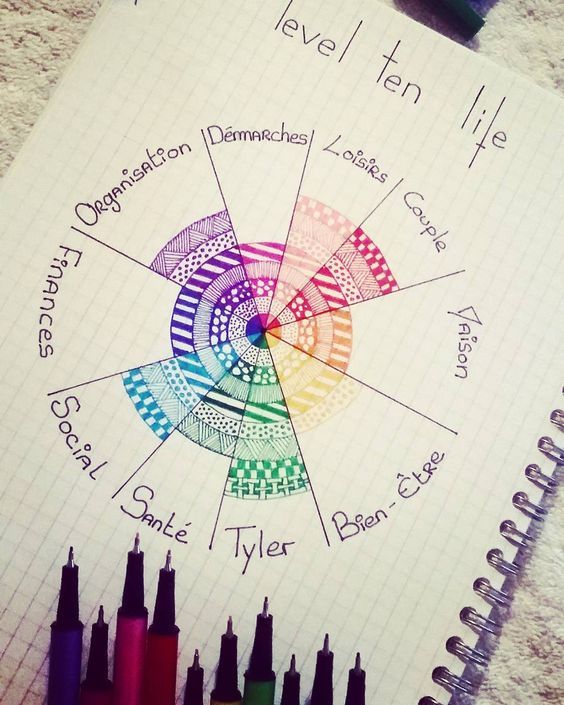 level ten life
Démarches
Loisirs
Couple
Maison
Bien-Être
Tyler
Santé
Social
Finances
Organisation